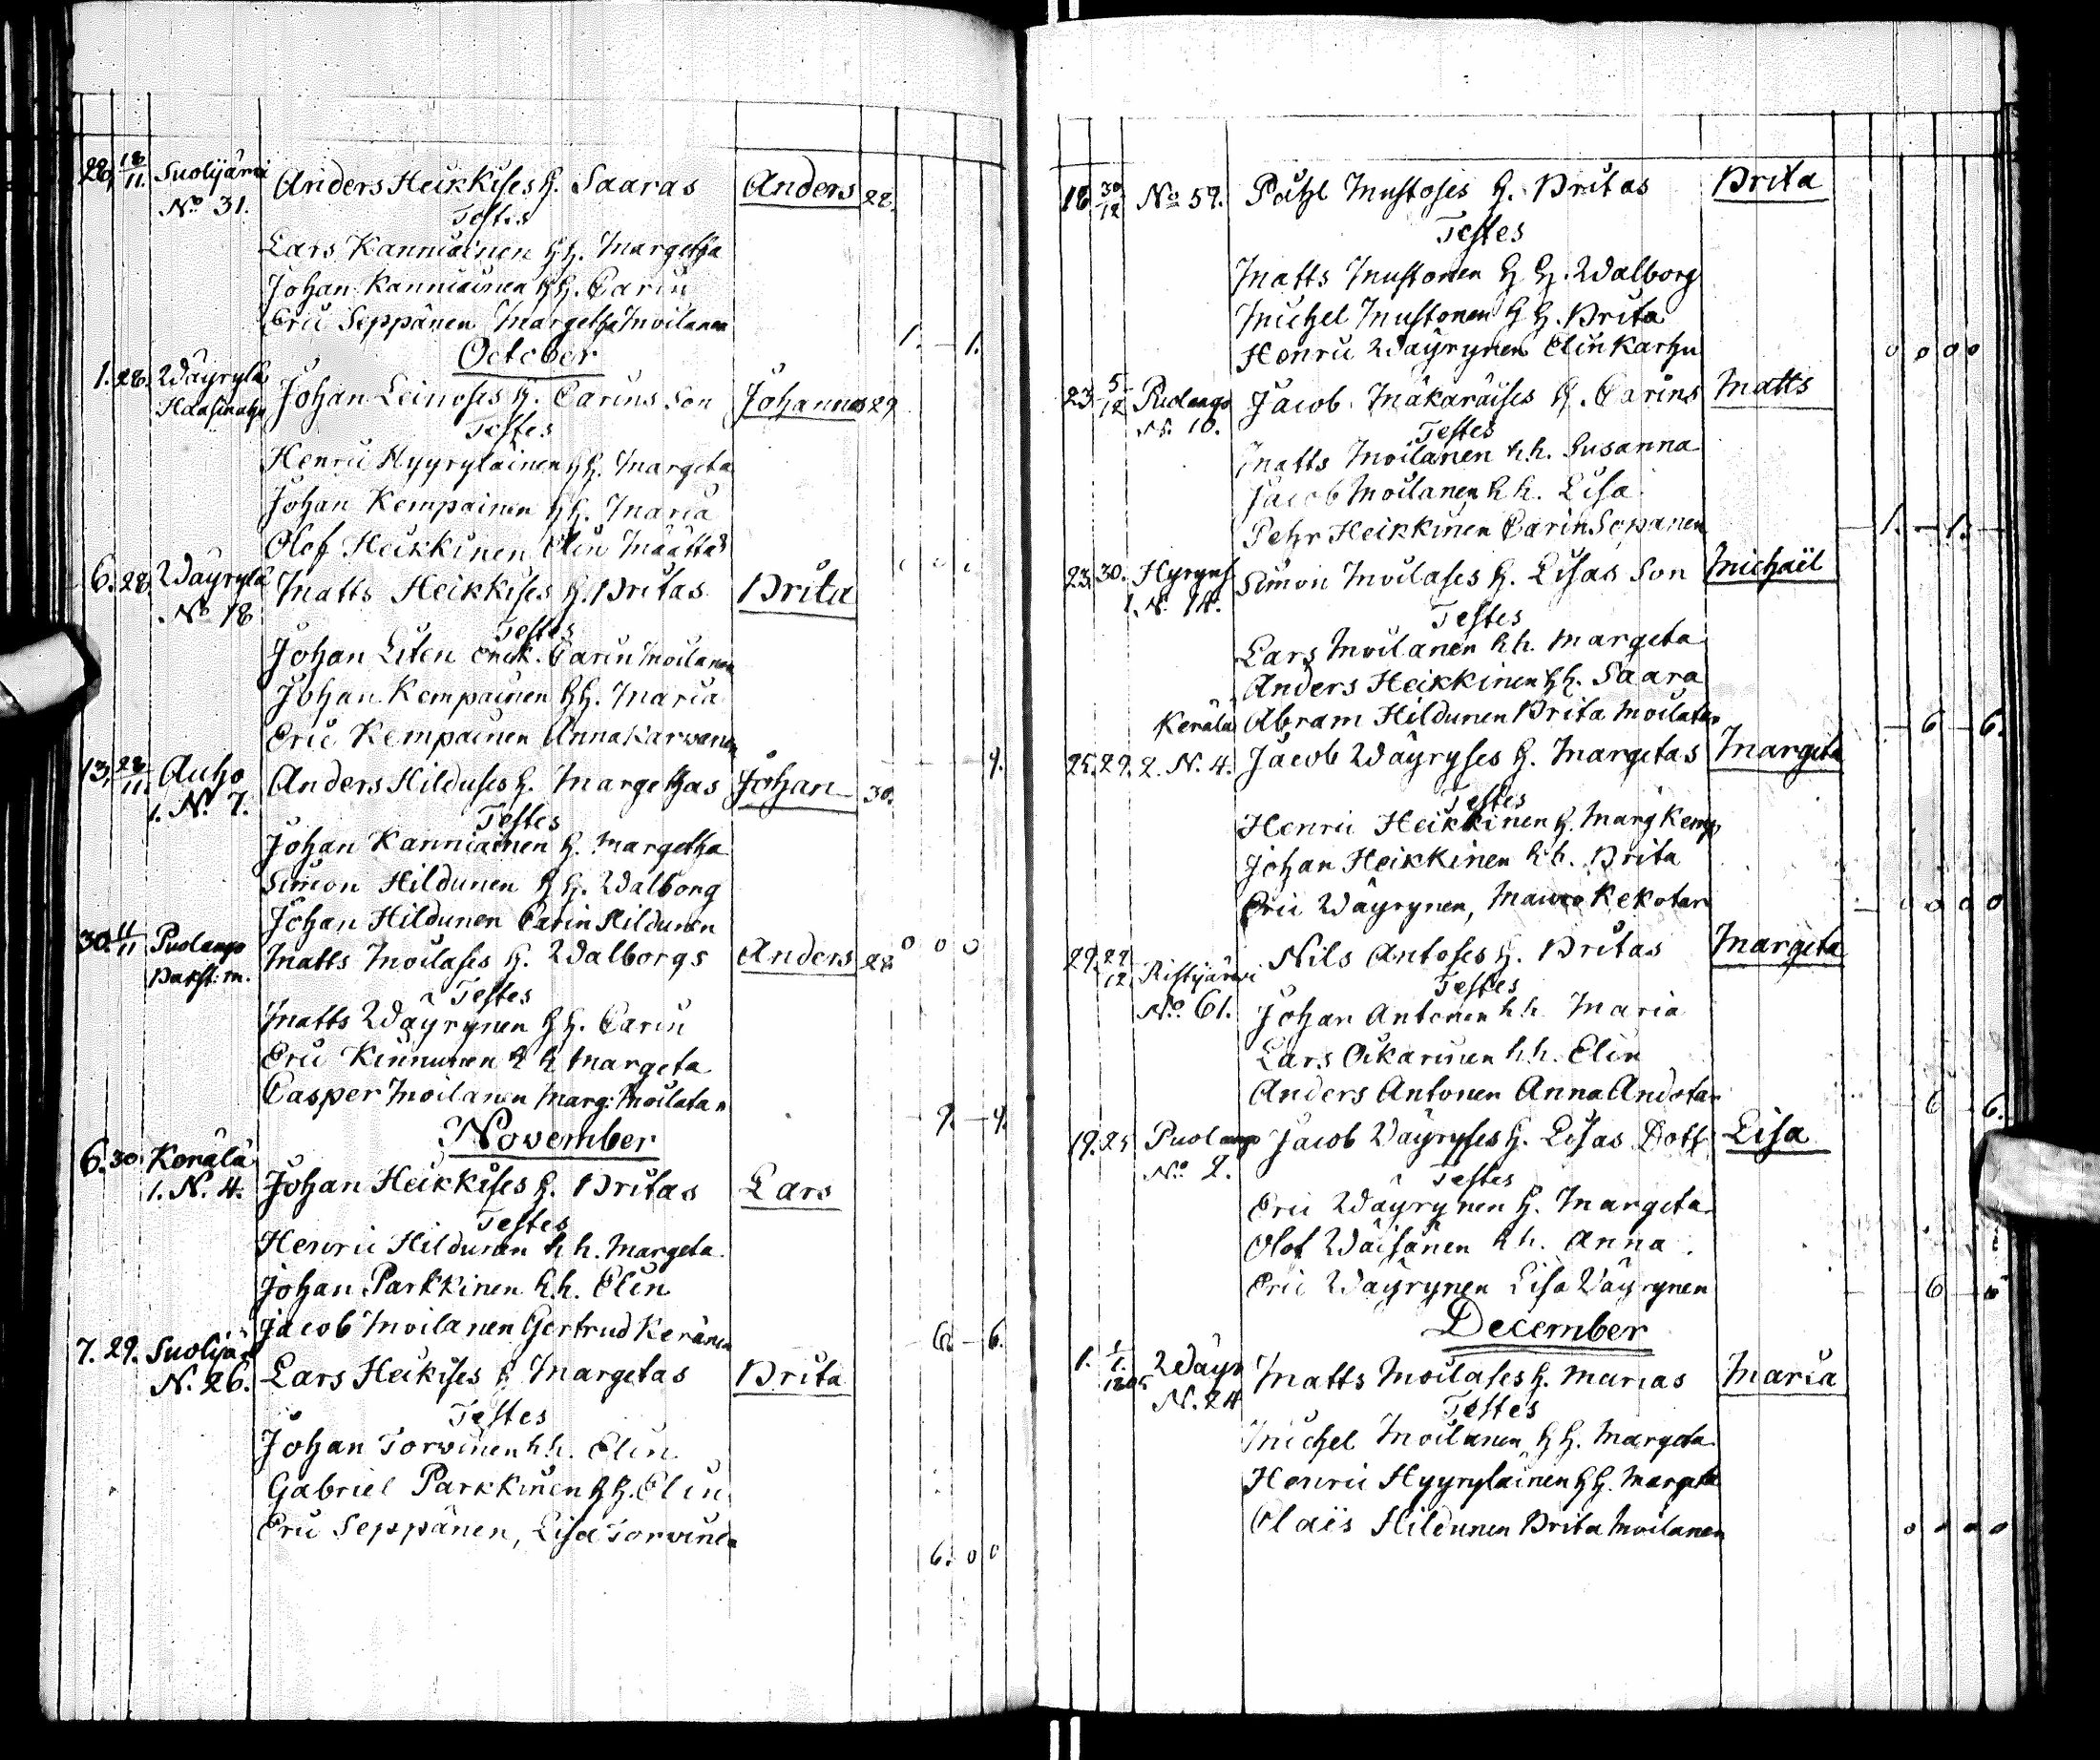 28. 18/11. Suolijärvi Anders Heikkises h. Saaras Anders 28.
No 31. Testes
Lars Kanniainen h h. Margetha
Johan Kanniainen h h. Carin
Eric Seppänen Margetha Moilanen 1. – 1.
October
1. 28. Wäyrylä Johan Leinoses h. Carins Son Johannes 29
Testes
Henric Hyyryläinen h h. Margeta
Johan Kempainen h h. Maria
Olof Heikkinen Elin Määttä
6. 28. Wäyrylä Matts Heikkises h. Britas Brita
No 18 Testes
Johan Liten Enck. Carin Moilanen
Johan Kempainen h h. Maria
Eric Kempainen Anna Karwanen 9.
13. 28/11. Auho Anders Hilduses h. Margethas Johan 30.
1. No. 7. Testes
Johan Kanniainen h. Margetha
Simon Hildunen h h. Walborg
Johan Hildunen Carin Hildunen
30. 11/11 Puolango Matts Moilases h. Walborgs Anders 28 0 0 0
Bakst. m. Testes
Matts Wäyrynen h h. Carin
Eric Kinnunen h h Margeta
Casper Moilanen Marg: Moilatar 9. – 9.
November
6. 30. Kerälä Johan Heikkises h. Britas Lars
1. N. 4. Testes
Henric Hildunen h h. Margeta
Johan Parkkinen h.h. Elin
Jacob Moilanen Gertrud Keränen 6. – 6.
7. 29. Suolijär Lars Heikises h Margetas Brita
N. 26. Testes
Johan Torvinen h.h. Elin
Gabriel Parkkinen h h. Elin
Eric Seppänen, Lisa Torvinen 6. 0 0
18 30/12 No 59. Påhl Mustoses h. Britas Brita
Testes
Matts Mustonen h h. Walborg
Michel Mustonen h h. Brita
Henric Wäyrynen Elin Karhu 0 0 0 0
23. 5/12 Puolango Jacob Mäkäräises h. Carins Matts
N. 10. Testes
Matts Moilanen h.h. Susanna
Jacob Moilanen h h. Lisa
Pehr Heikkinen Carin Sepänen – 1. – 1. –
23. 30. Hyryns Simon Moilases h. Lisas Son Michaël
1. N. 14. Testes
Lars Moilanen h h. Margeta
Anders Heikkinen h h. Saara
Kerälä Abram Hildunen Brita Moilatar – 6 – 6.
25. 29. 2. N. 4. Jacob Wäyryses h. Margetas Margeta
Testes
Henric Heikkinen h. Marg Kemp
Johan Heikkinen h h. Brita
Eric Wäyrynen, Kekotar 0 0 0 0
29. 29/12. Ristijärvi Nils Antoses h. Britas Margeta
No. 61. Testes
Johan Antonen h h Maria
Lars Oikarinen h.h. Elin
Anders Antonen Anna Andotar 6 – 6.
19. 25 Puolango Jacob Wäyryses h. Lisas Dott Lisa
No 2. Testes
Eric Wäyrynen h. Margeta
Olof Wäisänen h h. Anna.
Eric Wäyrynen Lisa Wäyrynen – 6 –
December
1. 1/1. 1805 Wäyr Matts Moilases h. Marias Maria
N. 24 Testes
Michel Moilanen h h. Margeta
Henric Hyyryläinen h h. Margeta
Hildunen Brita Moilanen 0 0 0 0